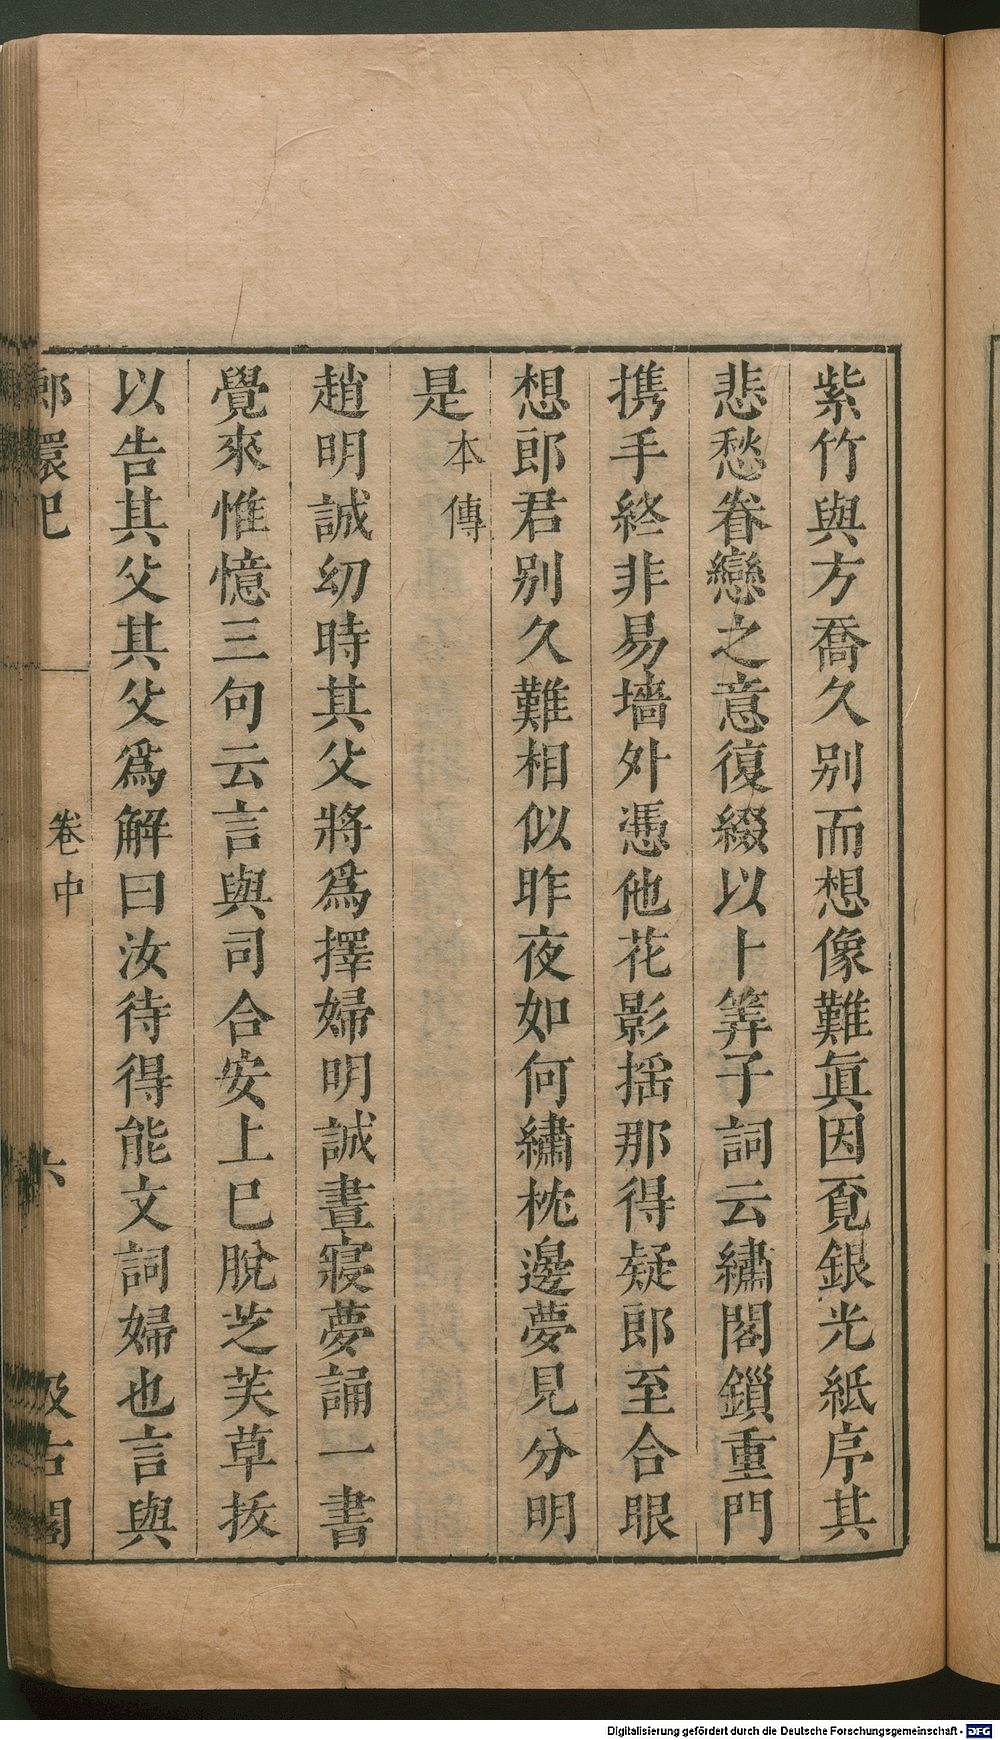 紫竹與方喬久別而想像難眞因覓銀光紙序其
悲愁眷戀之意復綴以卜筭子詞云繡閣鎖重門
携手終非易墻外憑他花影揺那得疑郎至合眼
想郎君別久難相似昨夜如何繡枕邊夢見分明
是本傳
趙明誠幼時其父將爲擇婦明誠晝寢夢誦一書
覺來惟憶三句云言與司合安上已脫芝芙草拔
以告其父其父爲解曰汝待得能文詞婦也言與
郎環記 卷中 六 汲古閣
Digitalisierung gefördert durch die Deutsche Forschungsgemeinschaft - DFG